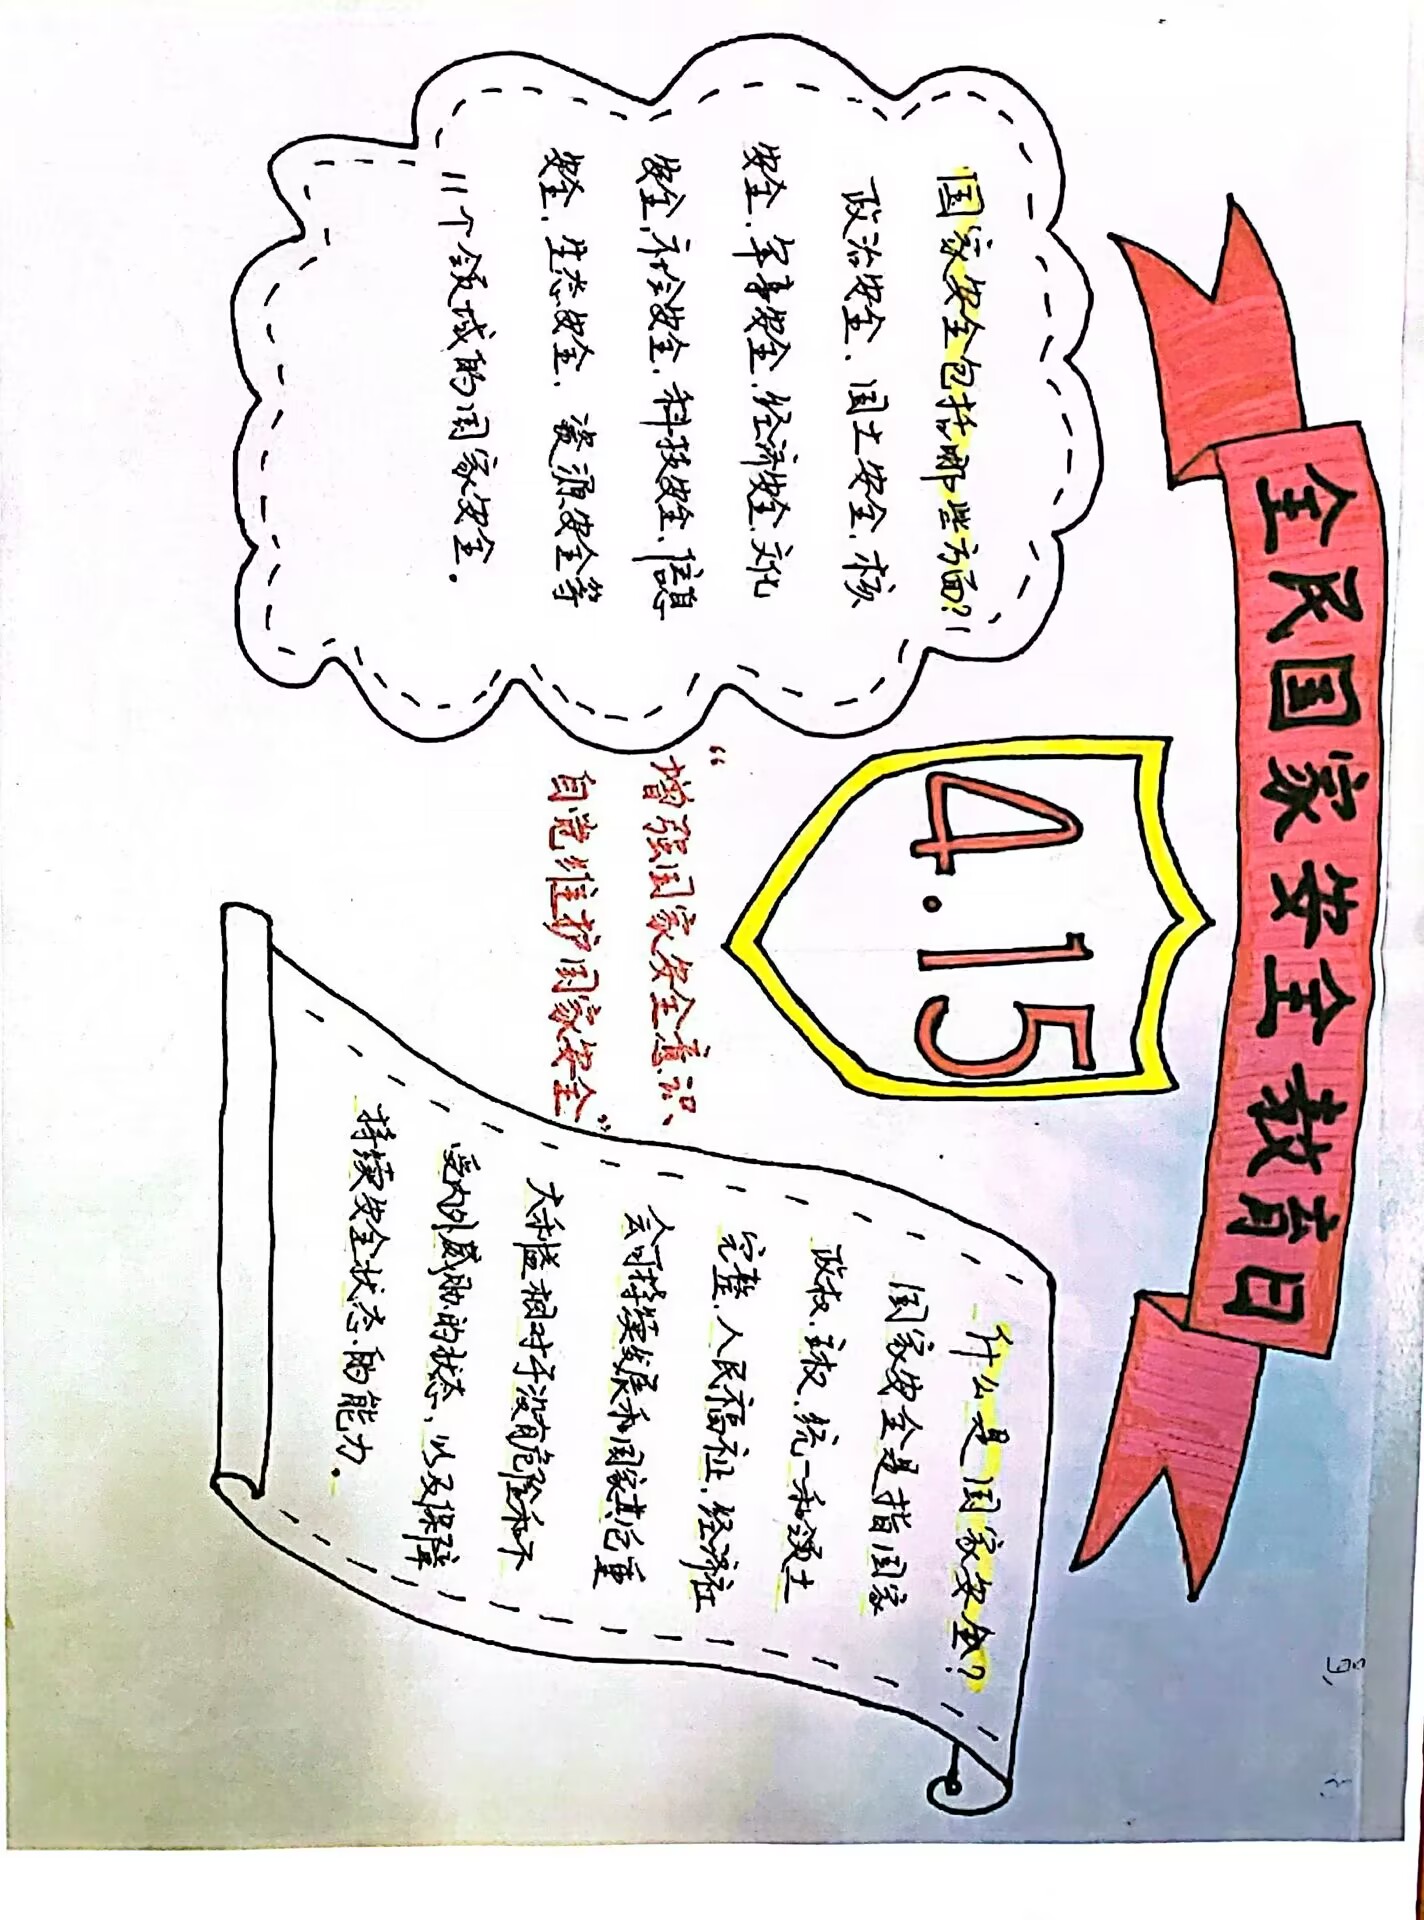 全民国家安全教育日
4.15
国家安全包括哪些方面?
政治安全、国土安全、核
安全、军事安全、经济安全、文化
安全、社会安全、科技安全、信息
安全、生态安全、资源安全等
11个领域的国家安全。
“增强国家安全意识
自觉维护国家安全”
什么是国家安全?
国家安全是指国家
政权、主权、统一和领土
完整、人民福祉、经济社
会可持续发展和国家其它重
大利益相对于没有危险和不
受内外威胁的状态、以及保障
持续安全状态的能力。